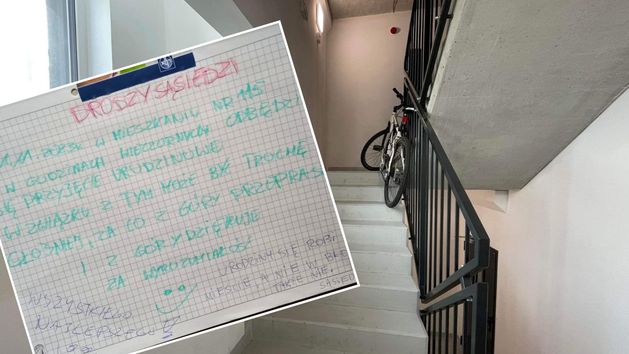 DRODZY SĄSIEDZI
W MIESZKANIU NR 115
W GODZINACH WIECZORNYCH ODBĘDZI
SIĘ PRZYJĘCIE URODZINOWE.
W ZWIĄZKU Z TYM MOŻE BYĆ TROCHĘ
GŁOŚNIEJ, ZA CO Z GÓRY PRZEPRAS
I Z GÓRY DZIĘKUJE
ZA WYROZUMIAŁOŚĆ
URODZINY SIĘ ROBI
A NIE W BL
TAKIE NIE.
SĄSIED
WSZYSTKIEGO
NAJLEPSZEGO